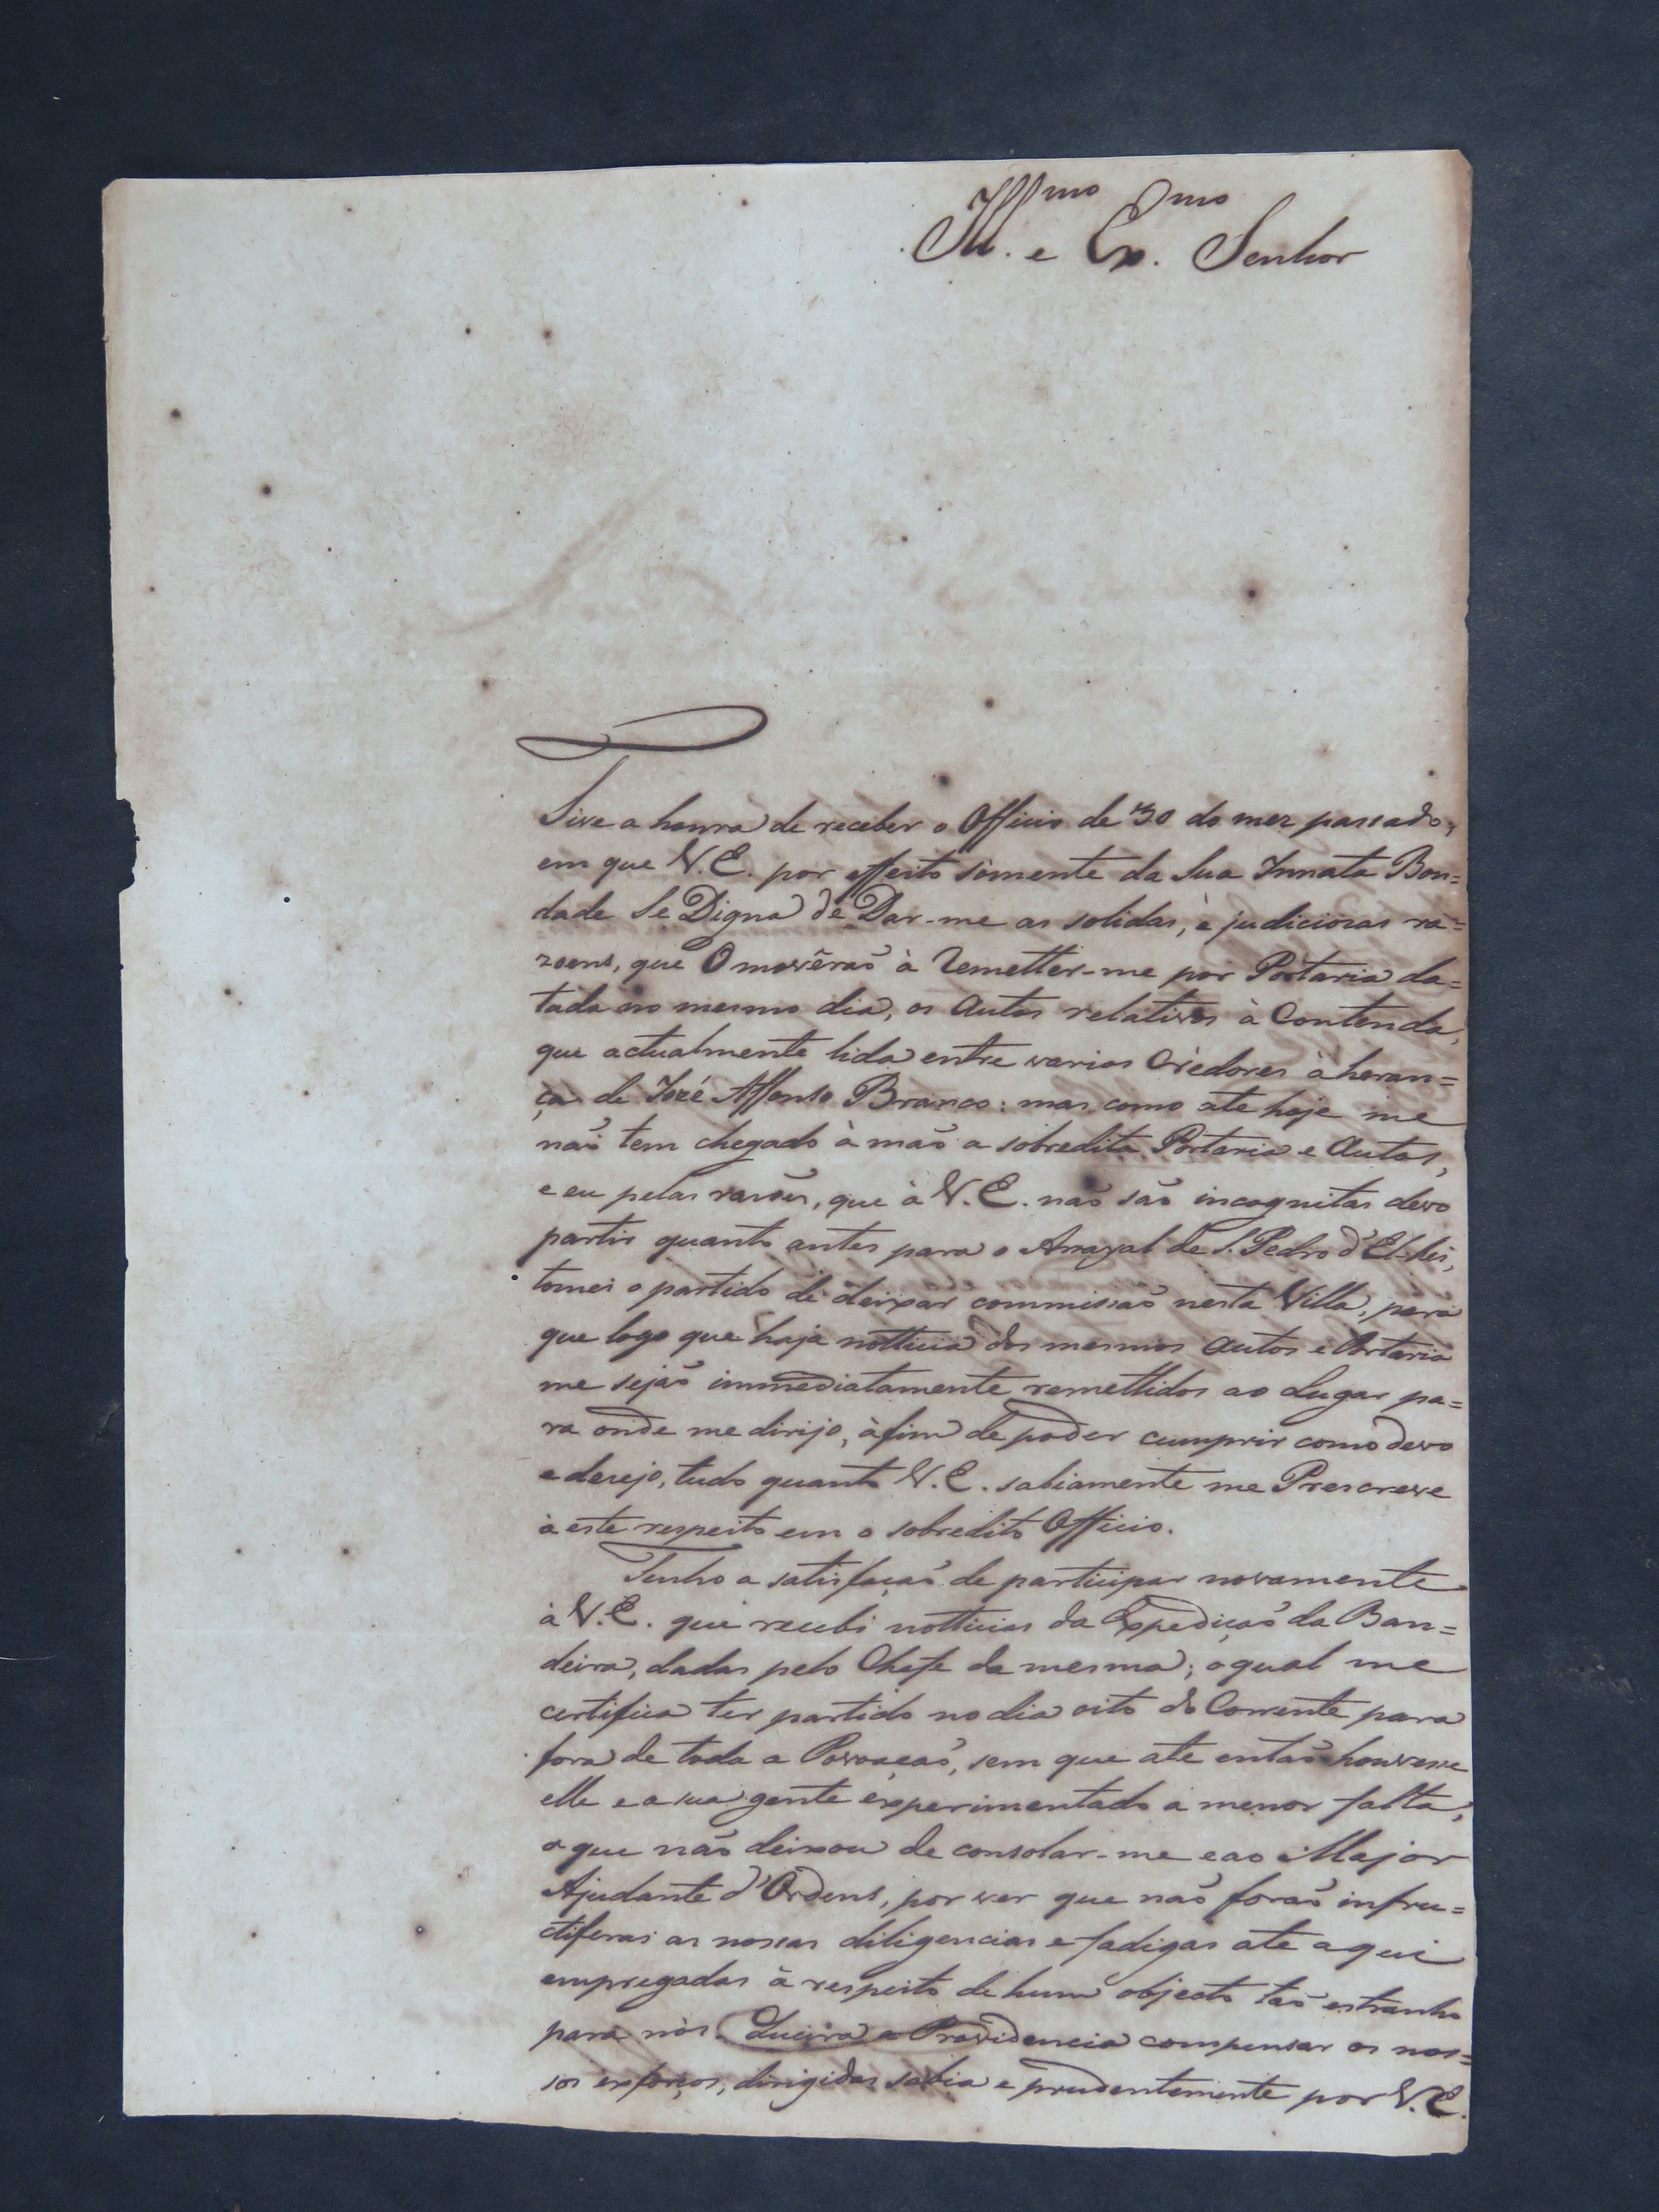 Ill.mo e Ex.mo Senhor
Tive a honra de receber o Officio de 30 do mez passado,
em que V.E. por effeito sómente da Sua Innata Bon=
dade Se Digna de Dar-me as solidas, e judiciosas ra=
zoens, que O movêraõ à Remetter-me por Portaria da=
tada no mesmo dia, os Autos relativos à Contenda,
que actualmente lida entre varios Crèdores à heran=
ça de Jozé Affonso Branco: mas como ate hoje me
naõ tem chegado à maõ a sobredita Portaria e Autos,
e eu pelas rasões, que à V.E. naõ saõ incognitas devo
partir quanto antes para o Arrayal de S. Pedro d'El-Rei,
tomei o partido de deixar commissaõ nesta Villa, para
que logo que haja notticia dos mesmos Autos e Portaria
me sejaõ immediatamente remettidos ao Lugar pa=
ra onde me dirijo, àfim de poder cumprir como devo
e desejo, tudo quanto V.E. sabiamente me Prescreve
à este respeito em o sobredito Officio.
Tenho a satisfaçaõ de participar novamente
à V.E. que recebi notticias da Expediçaõ da Ban=
deira, dadas pelo Chefe da mesma; o qual me
certifica ter partido no dia oito do Corrente para
fora de toda a Povoaçaõ, sem que ate entaõ houvesse
elle e a sua gente experimentado a menor falta,
o que naõ deixou de consolar-me e ao Major
Ajudante d'Ordens, por ver que naõ foraõ infru=
ctiferas as nossas diligencias e fadigas ate aqui
empregadas à respeito de hum objecto taõ estranho
para nòs. Queira a Providencia compensar os nos=
sos exforços, dirigidos sabia e prudentemente por V.E.